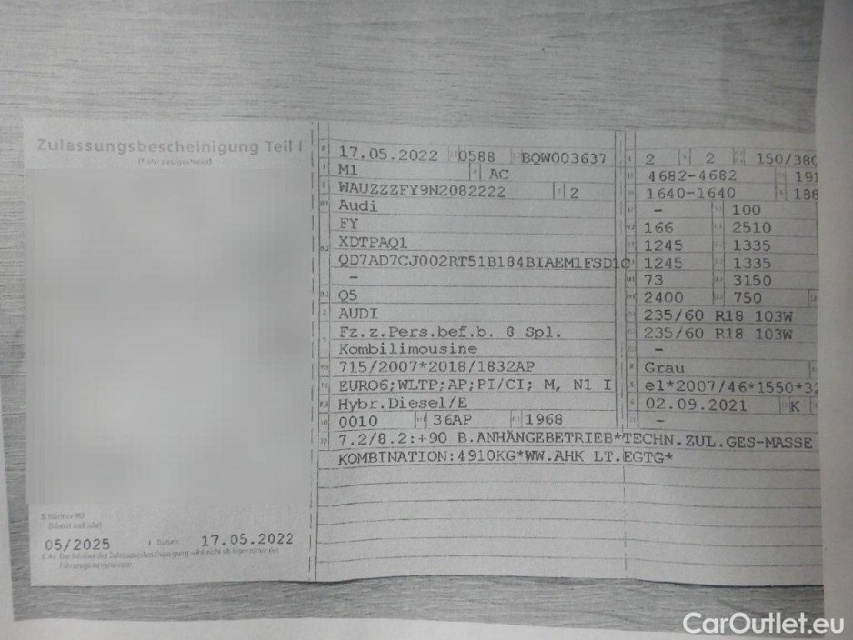 Zulassungsbescheinigung Teil I
(Fahrzeugschein)
05/2025
17.05.2022
17.05.2022 0588 BQW003637
M1 AC
WAUZZZFY9N2082222 2
Audi
FY
XDTPAQ1
QD7AD7CJ002RT51B184BIAEM1FSD1C
–
Q5
AUDI
Fz.z.Pers.bef.b. 8 Spl.
Kombilimousine
715/2007*2018/1832AP
EURO6;WLTP;AP;PI/CI; M, N1 I
Hybr.Diesel/E
0010 36AP 1968
7.2/8.2:+90 B.ANHÄNGEBETRIEB*TECHN.ZUL.GES-MASSE
KOMBINATION:4910KG*WW.AHK LT.EGTG*
2 2 150/380
4682-4682 191
1640-1640 186
– 100
166 2510
1245 1335
1245 1335
73 3150
2400 750
235/60 R18 103W
235/60 R18 103W
–
Grau
e1*2007/46*1550*32
02.09.2021 K
–
CarOutlet.eu